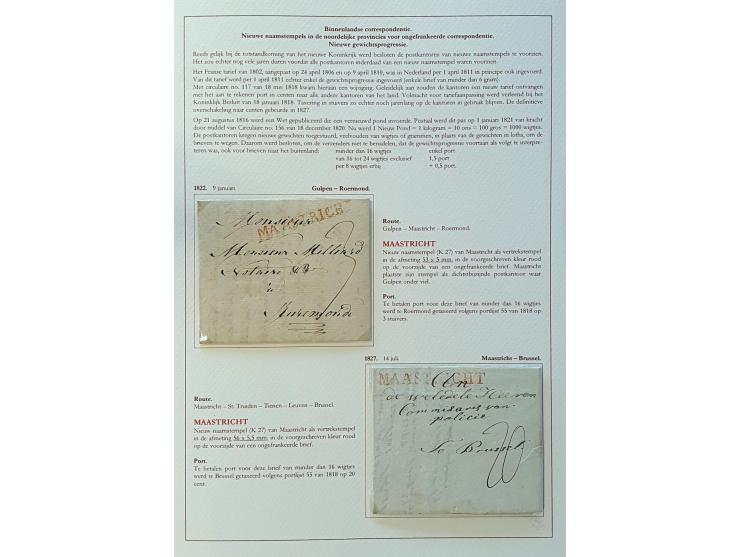 Binnenlandse correspondentie.
Nieuwe naamstempels in de noordelijke provincies voor ongefrankeerde correspondentie.
Nieuwe gewichtsprogressie.
Reeds gelijk bij de totstandkoming van het nieuwe Koninkrijk werd besloten de postkantoren van nieuwe naamstempels te voorzien.
Het zou echter nog vele jaren duren voordat alle postkantoren inderdaad van een nieuw naamstempel waren voorzien.
Het Franse tarief van 1802, aangepast op 24 april 1806 en op 9 april 1810, was in Nederland per 1 april 1811 in principe ook ingevoerd.
Van dit tarief werd per 1 april 1811 echter enkel de gewichtsprogressie ingevoerd (enkele brief van minder dan 6 gram).
Met circulaire no. 117 van 18 mei 1818 kwam hieraan een wijziging. Geleidelijk aan zouden de kantoren een nieuw tarief ontvangen
met het aan te rekenen port in centen naar alle andere kantoren van het land. Volmacht voor tariefaanpassing werd verleend bij het
Koninklijk Besluit van 18 januari 1818. Taxering in stuivers zo echter noch jarenlang op de kantoren in gebruik blijven. De definitieve
overschakeling naar centen gebeurde in 1827.
Op 21 augustus 1816 werd een Wet gepubliceerd die een vernieuwd pond invoerde. Postaal werd dit pas op 1 januari 1821 van kracht
door middel van Circulaire no. 156 van 18 december 1820. Nu werd 1 Nieuw Pond = 1 kilogram = 10 ons = 100 gros = 1000 wigtjes.
De postkantoren kregen nieuwe gewichten toegestuurd, veelvouden van wigtjes of grammen, in plaats van de gewichten in loths, om de
brieven te wegen. Daarom werd besloten, om de verzenders niet te benadelen, dat de gewichtsprogressie voortaan als volgt te interpre-
teren was, ook voor brieven naar het buitenland: minder dan 16 wigtjes enkel port
van 16 tot 24 wigtjes exclusief 1,5 port
per 8 wigtjes erbij + 0,5 port.
1822. 9 januari. Gulpen – Roermond.
MAASTRICHT
Monsieur
Monsieur Milliard
Notaire &&
à
Ruremonde
Route.
Gulpen – Maastricht – Roermond.
MAASTRICHT
Nieuw naamstempel (K 27) van Maastricht als vertrekstempel
in de afmeting 53 x 5 mm, in de voorgeschreven kleur rood
op de voorzijde van een ongefrankeerde brief. Maastricht
plaatste zijn stempel als dichtstbijzijnde postkantoor waar
Gulpen onder viel.
Port.
Te betalen port voor deze brief van minder dan 16 wigtjes
werd te Roermond getaxeerd volgens portlijst 55 van 1818 op
3 stuivers.
1827. 14 juli. Maastricht – Brussel.
MAASTRICHT
Aen
de weledele Heeren
Commisaris van
policie
To Brussel
20
Route.
Maastricht – St. Truiden – Tienen – Leuven – Brussel.
MAASTRICHT
Nieuw naamstempel (K 27) van Maastricht als vertrekstempel
in de afmeting 56 x 5,5 mm, in de voorgeschreven kleur rood
op de voorzijde van een ongefrankeerde brief.
Port.
Te betalen port voor deze brief van minder dan 16 wigtjes
werd te Brussel getaxeerd volgens portlijst 55 van 1818 op 20
cent.